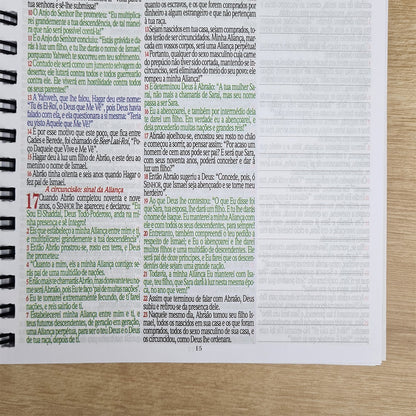 tua senhora e sê-lhe submissa!"
10 O Anjo do Senhor lhe prometeu: "Eu multiplica-
rei grandemente a tua descendência, de tal manei-
ra que não será possível contá-la!"
11 E o Anjo do Senhor concluiu: "Estás grávida e da-
rás à luz um filho, e tu lhe darás o nome de Ismael,
porquanto Yahweh te socorreu em teu sofrimento.
12 Contudo ele será como um jumento selvagem do
deserto; ele lutará contra todos e todos guerrearão
contra ele. Ele viverá em hostilidade contra todos
os seus parentes!"
13 A Yahweh, que lhe falou, Hagar deu este nome:
"Tu és El-Roí, ó Deus que Me Vê", pois Deus havia
falado com ela, e ela questionara a si mesma: "Teria
eu visto Aquele que Me Vê?"
14 E por esse motivo que este poço, que fica entre
Cades e Berede, foi chamado de Beer-Laai-Roí, "Po-
ço Daquele que Vive e Me Vê".
15 Hagar deu à luz um filho de Abrão, e este ao me-
nino o nome de Ismael.
16 Abrão tinha oitenta e seis anos quando Hagar o
fez pai de Ismael.
A circuncisão: sinal da Aliança
17 Quando Abrão completou noventa e nove
anos, o SENHOR lhe apareceu e declarou: "Eu
Sou El-Shaddai, Deus Todo-Poderoso, anda na mi-
nha presença e sê íntegro!
2 Eis que estabeleço a minha Aliança entre mim e ti,
e multiplicarei grandemente a tua descendência!"
3 Então Abrão prostrou-se, rosto em terra, e Deus
lhe prometeu:
4 "Quanto a mim, eis a minha Aliança contigo: se-
rás pai de uma multidão de nações.
5 Então mais te chamarás Abrão, mas doravante teu no-
me será Abraão, pois Eu te faço 'pai de muitas nações'.
6 Eu te tornarei extremamente fecundo, de ti farei
nações, e reis sairão de ti.
7 Estabelecerei minha Aliança entre mim e ti, e
teus futuros descendentes, de geração em geração,
uma Aliança perpétua, para ser o teu Deus e o Deus
de tua raça, depois de ti.
quanto os escravos, e os que forem comprados por
dinheiro a algum estrangeiro e que não pertençam
à tua raça.
13 Sejam nascidos em tua casa, sejam comprados, to-
dos terão de ser circuncidados. Minha Aliança, mar-
cada em vossos corpos, será uma Aliança perpétua!
14 Portanto, qualquer do sexo masculino cuja carne
do prepúcio não tiver sido cortada, mantendo-se in-
circunciso, será eliminado do meio do seu povo; ele
rompeu a minha Aliança!"
15 E determinou Deus à Abraão: "A tua mulher Sa-
rai, não mais a chamarás de Sarai, mas seu nome
passa a ser Sara.
16 Eu a abençoarei, e também por intermédio dela
te darei um filho. Em verdade eu a abençoarei, e
dela procederão muitas nações e grandes reis!"
17 Abraão ajoelhou-se, encostou seu rosto no chão
e começou a sorrir, ao pensar assim: "Por acaso um
homem de cem anos pode ser pai? E será que Sara,
com seus noventa anos, poderá conceber e dar à
luz um filho?"
18 Então Abraão sugeriu a Deus: "Concede, pois, ó
SENHOR, que Ismael seja abençoado e se torne meu
herdeiro".
19 Ao que Deus lhe contestou: "O que Eu disse foi
que Sara, tua esposa, lhe dará um filho. E tu lhe darás
o nome de Isaque. Eu manterei a minha Aliança com
ele e com todos os seus descendentes, para sempre!
20 Entretanto, também compreendi o teu pedido a
respeito de Ismael; e Eu o abençoarei e lhe darei
muitos filhos e uma grande descendência. Ele
será pai de doze príncipes, e Eu farei que os descen-
dentes dele sejam uma grande nação.
21 Todavia, a minha Aliança Eu manterei com Isa-
que, teu filho, que Sara dará à luz nesta mesma épo-
ca, no ano que vem!"
22 Assim que terminou de falar com Abraão, Deus
subiu e retirou-se da presença dele.
23 Naquele mesmo dia, Abraão tomou seu filho Is-
mael, todos os nascidos em sua casa e os que foram
comprados, todos do sexo masculino de sua casa, e
os circuncidou, como Deus lhe ordenara.
15